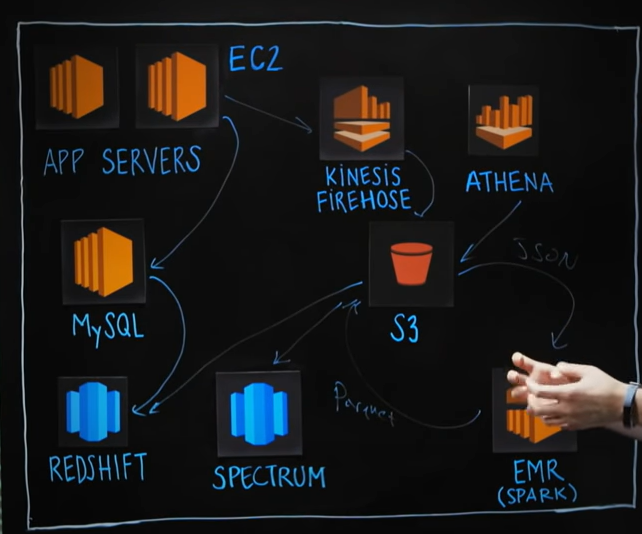 EC2
APP SERVERS
KINESIS
FIREHOSE
ATHENA
JSON
MySQL
S3
Parquet
REDSHIFT
SPECTRUM
EMR
(SPARK)